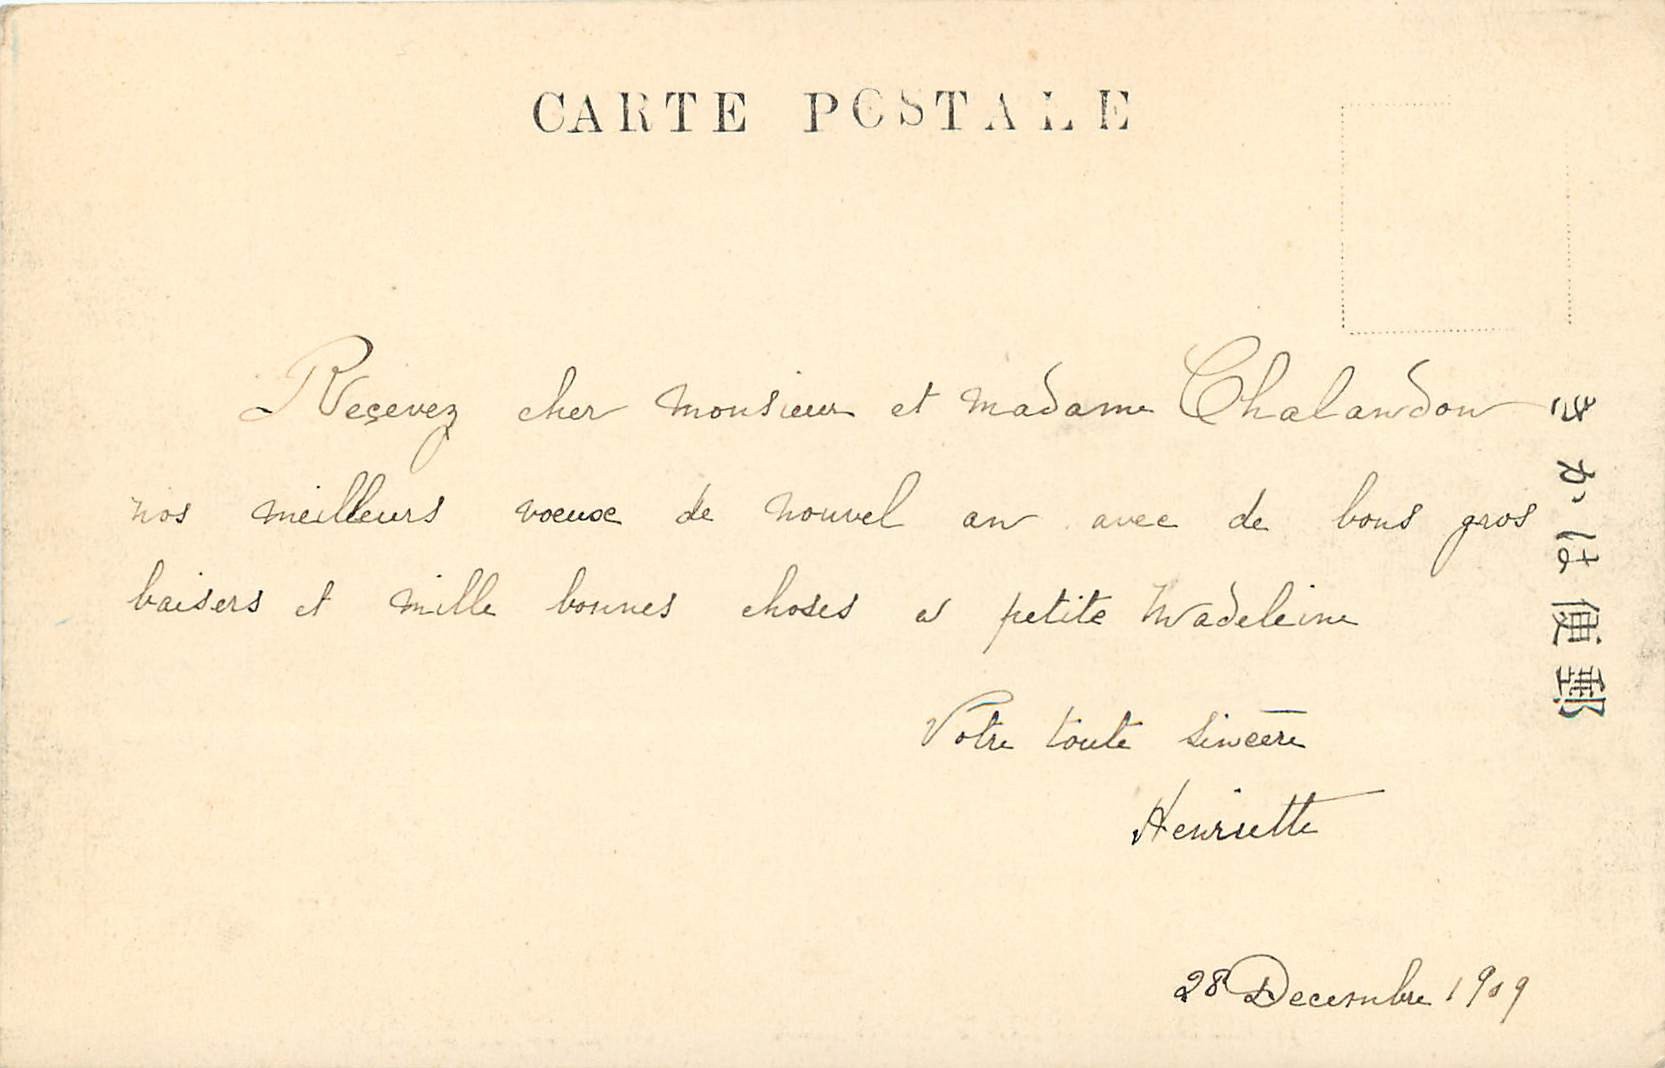 CARTE POSTALE
Reçevez cher monsieur et madame Chalandon
nos meilleurs voeux de nouvel an avec de bons gros
baisers et mille bonnes choses a petite Madeleine
Votre toute sincère
Henriette
28 Decembre 1909
郵便はかき